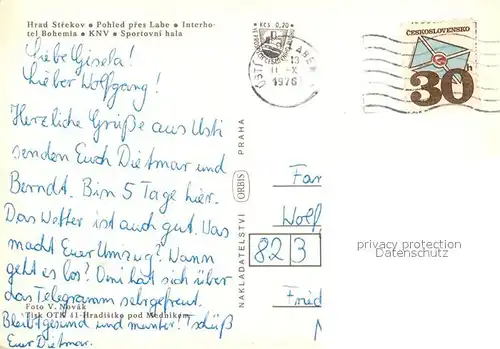 Hrad Střekov • Pohled přes Labe • Interho-
tel Bohemia • KNV • Sportovní hala
Liebe Gisela!
Lieber Wolfgang!
Herzliche Grüße aus Usti
senden Euch Dietmar und
Berndt. Bin 5 Tage hier.
Das Wetter ist auch gut. Was
macht Euer Umzug? Wann
geht es los? Omi hat sich über
das Telegramm sehr gefreut.
Foto V. Novák
Bleibt gesund und munter! Tschüß
Tisk OTK 41-Hradištko pod Medníkem
Euer Dietmar.
NAKLADATELSTVÍ ORBIS PRAHA
Kčs 0,20
ÚSTÍ
13
11-X
1976
ČESKOSLOVENSKO
30h
Fam
Wolf
823
privacy protection
Datenschutz
Fried